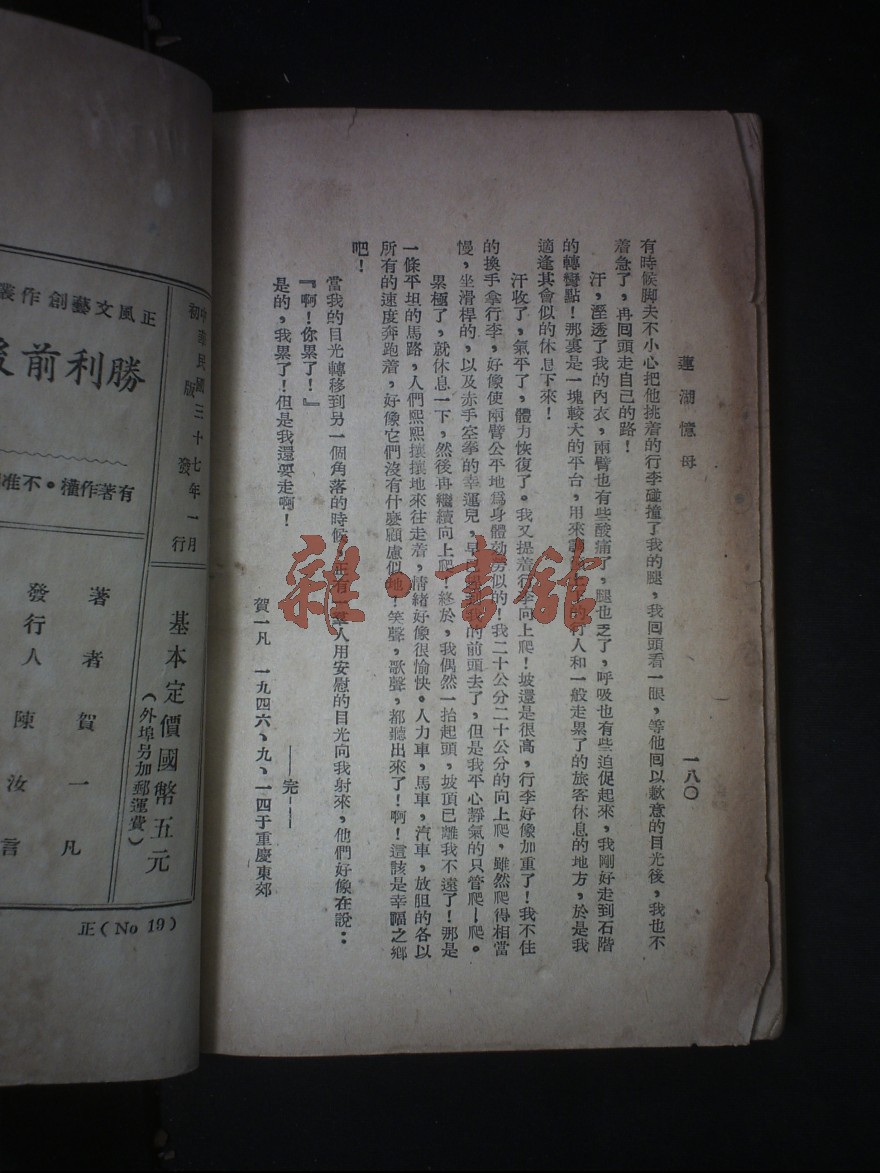 蓮湖憶母
一八〇
有時候脚夫不小心把他挑着的行李碰撞了我的腿，我回頭看一眼，等他回以歉意的目光後，我也不
着急了，再回頭走自己的路！
汗，溼透了我的內衣，兩臂也有些酸痛了，腿也乏了，呼吸也有些迫促起來，我剛好走到石階
的轉彎點！那裏是一塊較大的平台，用來
行人和一般走累了的旅客休息的地方，於是我
適逢其會似的休息下來！
汗收了，氣平了，體力恢復了。我又提着行李向上爬！坡還是很高，行李好像加重了！我不住
的換手拿行李，好像使兩臂公平地爲身體効勞似的！我二十公分二十公分的向上爬，雖然爬得相當
慢，坐滑桿的，以及赤手空拳的幸運兒，早
的前頭去了，但是我平心靜氣的只管爬—爬。
累極了，就休息一下，然後再繼續向上爬！終於，我偶然一抬起頭，坡頂已離我不遠了！那是
一條平坦的馬路，人們熙熙攘攘地來往走着，情緒好像很愉快。人力車，馬車，汽車，放胆的各以
所有的速度奔跑着，好像它們沒有什麼顧慮似地！笑聲，歌聲，都聽出來了！啊！這該是幸福之鄉
吧！
當我的目光轉移到另一個角落的時候，正有一羣人用安慰的目光向我射來，他們好像在說：：
『啊！你累了！』
是的，我累了！但是我還要走啊！
——完——
賀一凡　一九四六、九、一四于重慶東郊
雜·書館
正風文藝創作叢
勝利前後
有著作權·不准
中華民國三十七年一月
初版發行
基本定價國幣五元
（外埠另加郵運費）
著者　賀一凡
發行人　陳汝言
正（No 19）